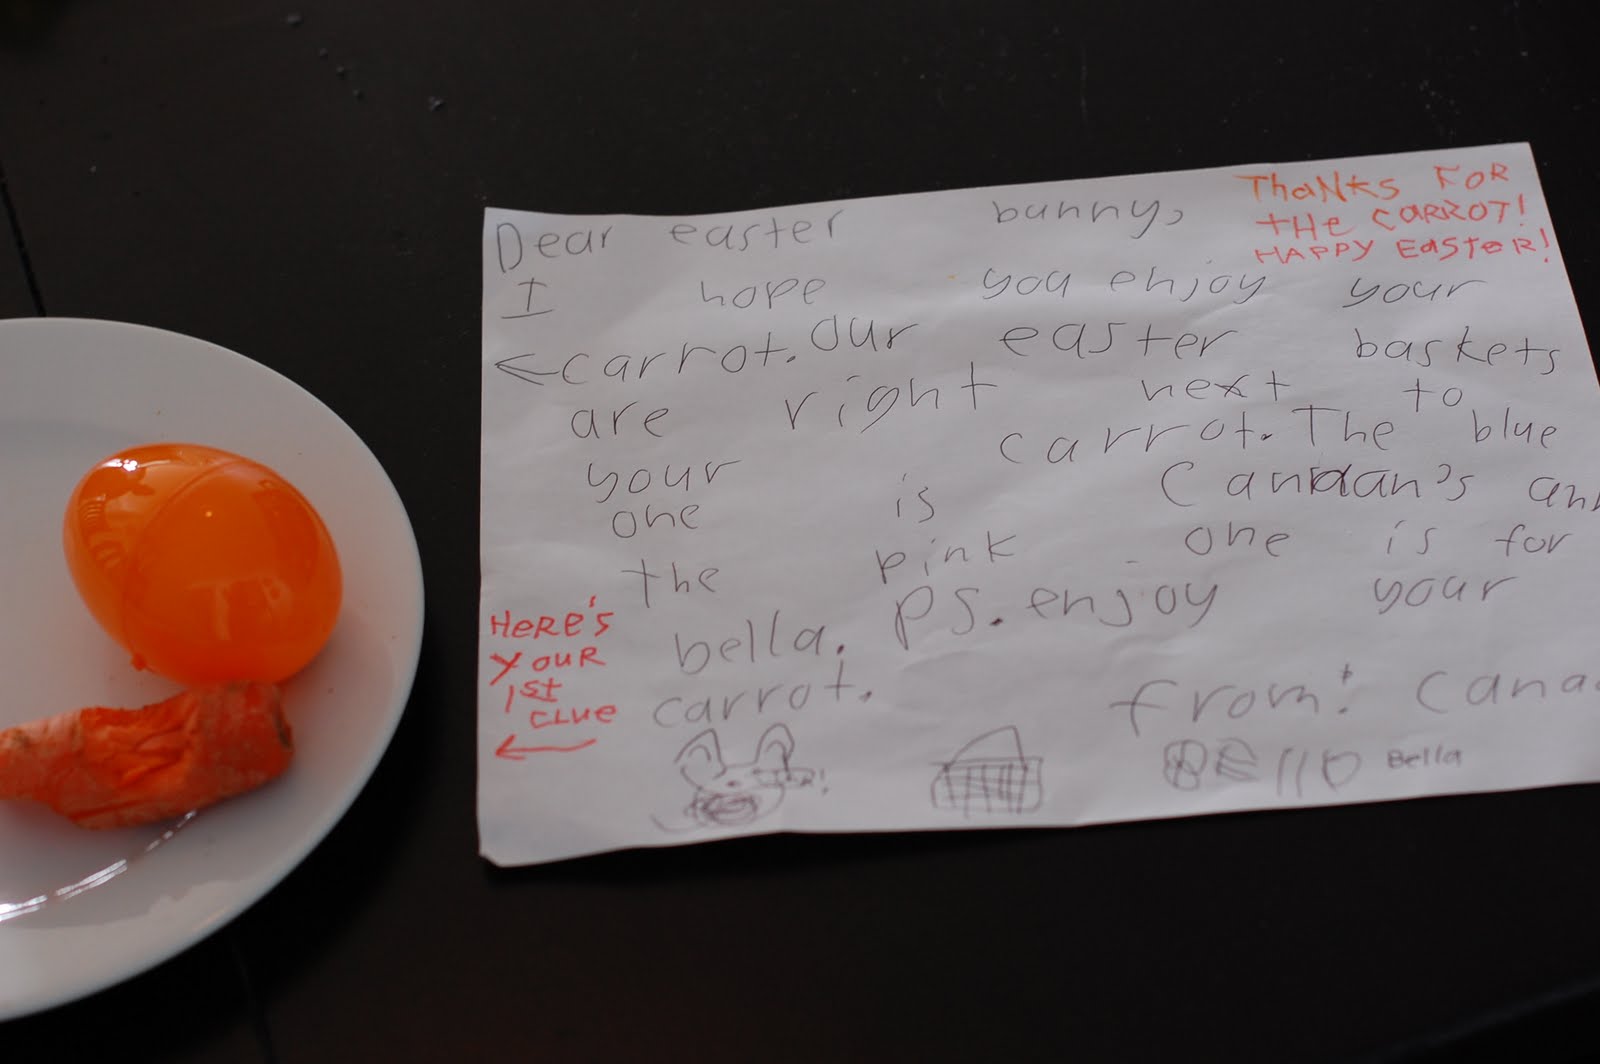 Dear easter bunny,
I hope you enjoy your
carrot. Our easter baskets
are right next to
your carrot. The blue
one is Canaan's an
the pink one is for
bella. PS. enjoy your
carrot.
from: Cana
Bella
THANKS FOR
THE CARROT!
HAPPY EASTER!
HERE'S
YOUR
1ST
CLUE